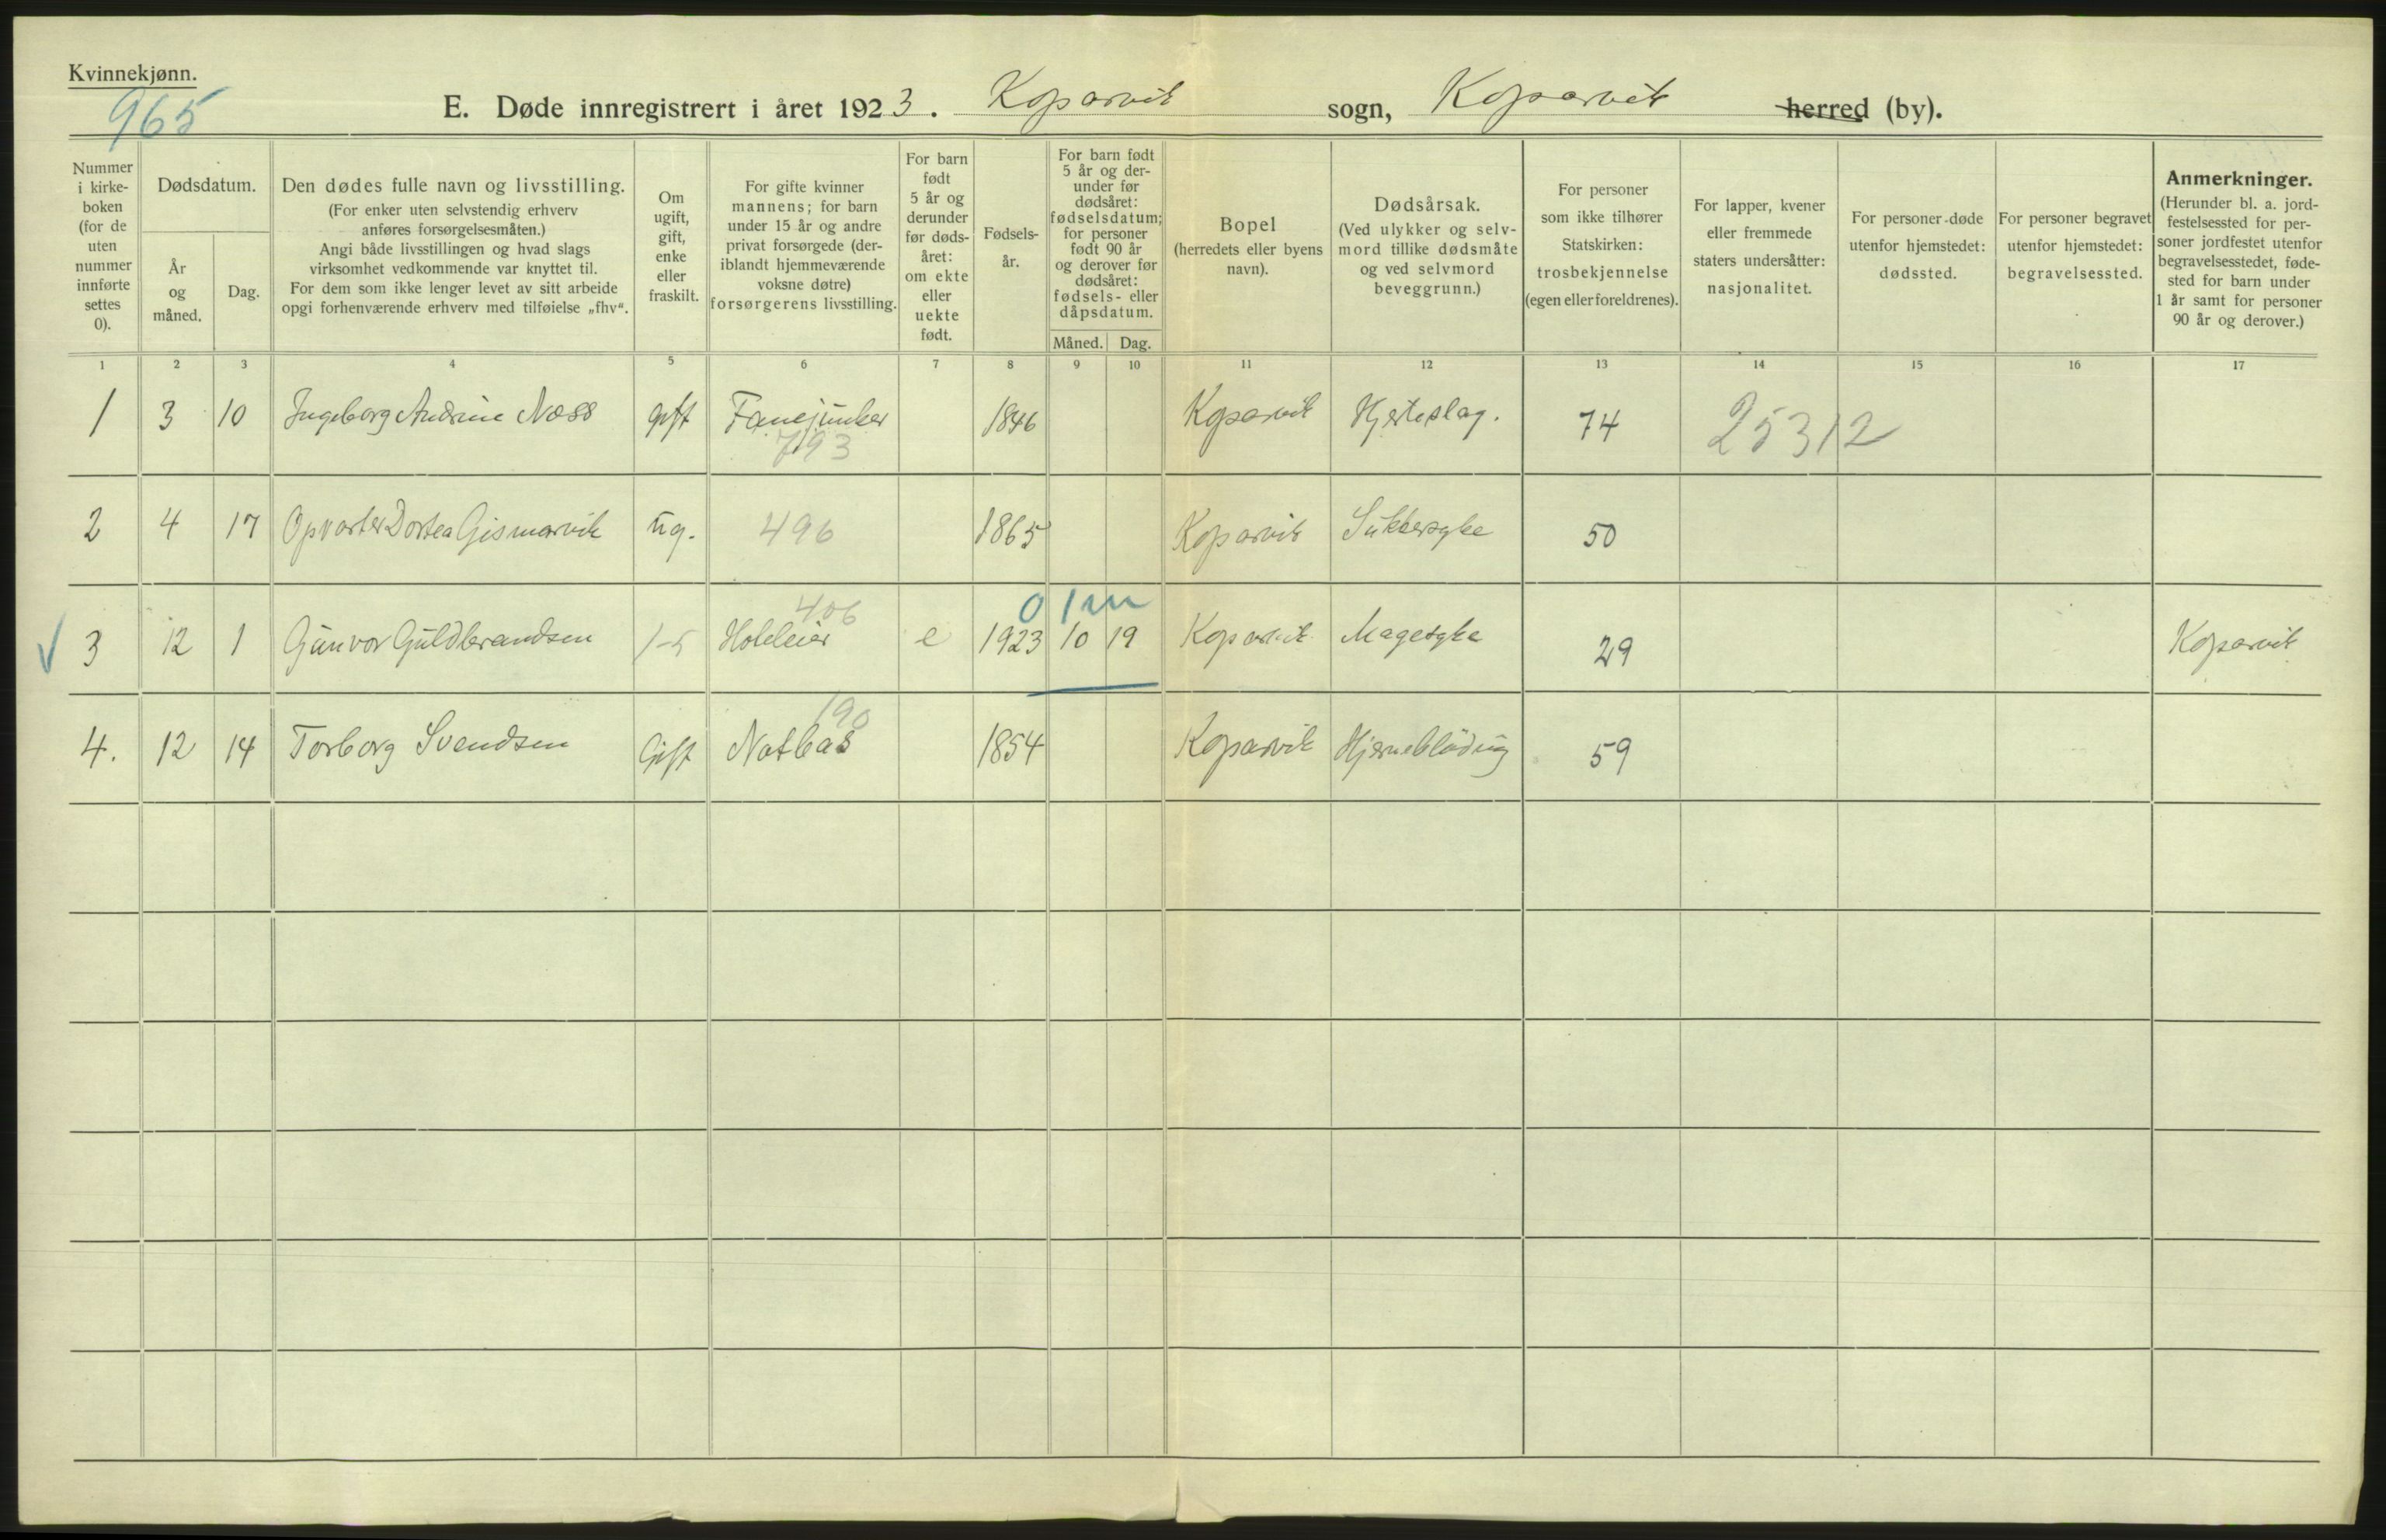 Kvinnekjønn.
965
E. Døde innregistrert i året 1923. Kopervik sogn, Kopervik herred (by).
Nummer
i kirke-
boken
(for de
uten
nummer
innførte
settes
0).
Dødsdatum.
År
og
måned.
Dag.
Den dødes fulle navn og livsstilling.
(For enker uten selvstendig erhverv
anføres forsørgelsesmåten.)
Angi både livsstillingen og hvad slags
virksomhet vedkommende var knyttet til.
For dem som ikke lenger levet av sitt arbeide
opgi forhenværende erhverv med tilføielse „fhv“.
Om
ugift,
gift,
enke
eller
fraskilt.
For gifte kvinner
mannens; for barn
under 15 år og andre
privat forsørgede (der-
iblandt hjemmeværende
voksne døtre)
forsørgerens livsstilling.
For barn
født
5 år og
derunder
før døds-
året:
om ekte
eller
uekte
født.
Fødsels-
år.
For barn født
5 år og der-
under før
dødsåret:
fødselsdatum;
for personer
født 90 år
og derover før
dødsåret:
fødsels- eller
dåpsdatum.
Måned. Dag.
Bopel
(herredets eller byens
navn).
Dødsårsak.
(Ved ulykker og selv-
mord tillike dødsmåte
og ved selvmord
beveggrunn.)
For personer
som ikke tilhører
Statskirken:
trosbekjennelse
(egen eller foreldrenes).
For lapper, kvener
eller fremmede
staters undersåtter:
nasjonalitet.
For personer døde
utenfor hjemstedet:
dødssted.
For personer begravet
utenfor hjemstedet:
begravelsessted.
Anmerkninger.
(Herunder bl. a. jord-
festelsessted for per-
soner jordfestet utenfor
begravelsesstedet, føde-
sted for barn under
1 år samt for personer
90 år og derover.)
1 2 3 4 5 6 7 8 9 10 11 12 13 14 15 16 17
1 3 10 Ingeborg Andrine Næss gift Fanejunker 1846 Kopervik Hjerteslag. 74 25312
793
2 4 17 Opvarter Dortea Gismarvik ug. 496 1865 Kopervik Sukkersyke 50
406 0 1m
3 12 1 Gunvor Guldbrandsen Hoteleier e 1923 10 19 Kopervik Magesyke 29 Kopervik
190
4. 12 14 Torborg Svendsen Gift Notbas 1854 Kopervik Hjerneblødning 59